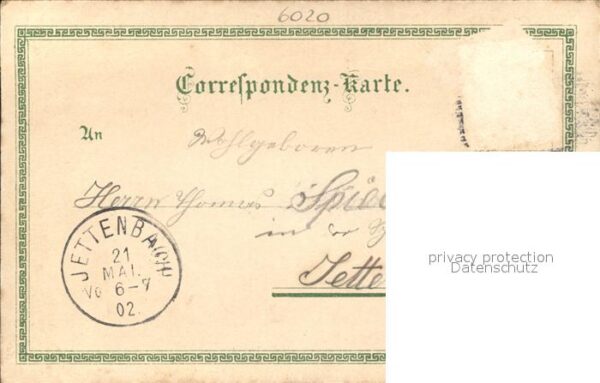 6020
Correspondenz-Karte.
An
Wohlgeboren
Herrn Thomas
in der
Jette
JETTENBACH
21
MAI.
6-7
02.
privacy protection
Datenschutz